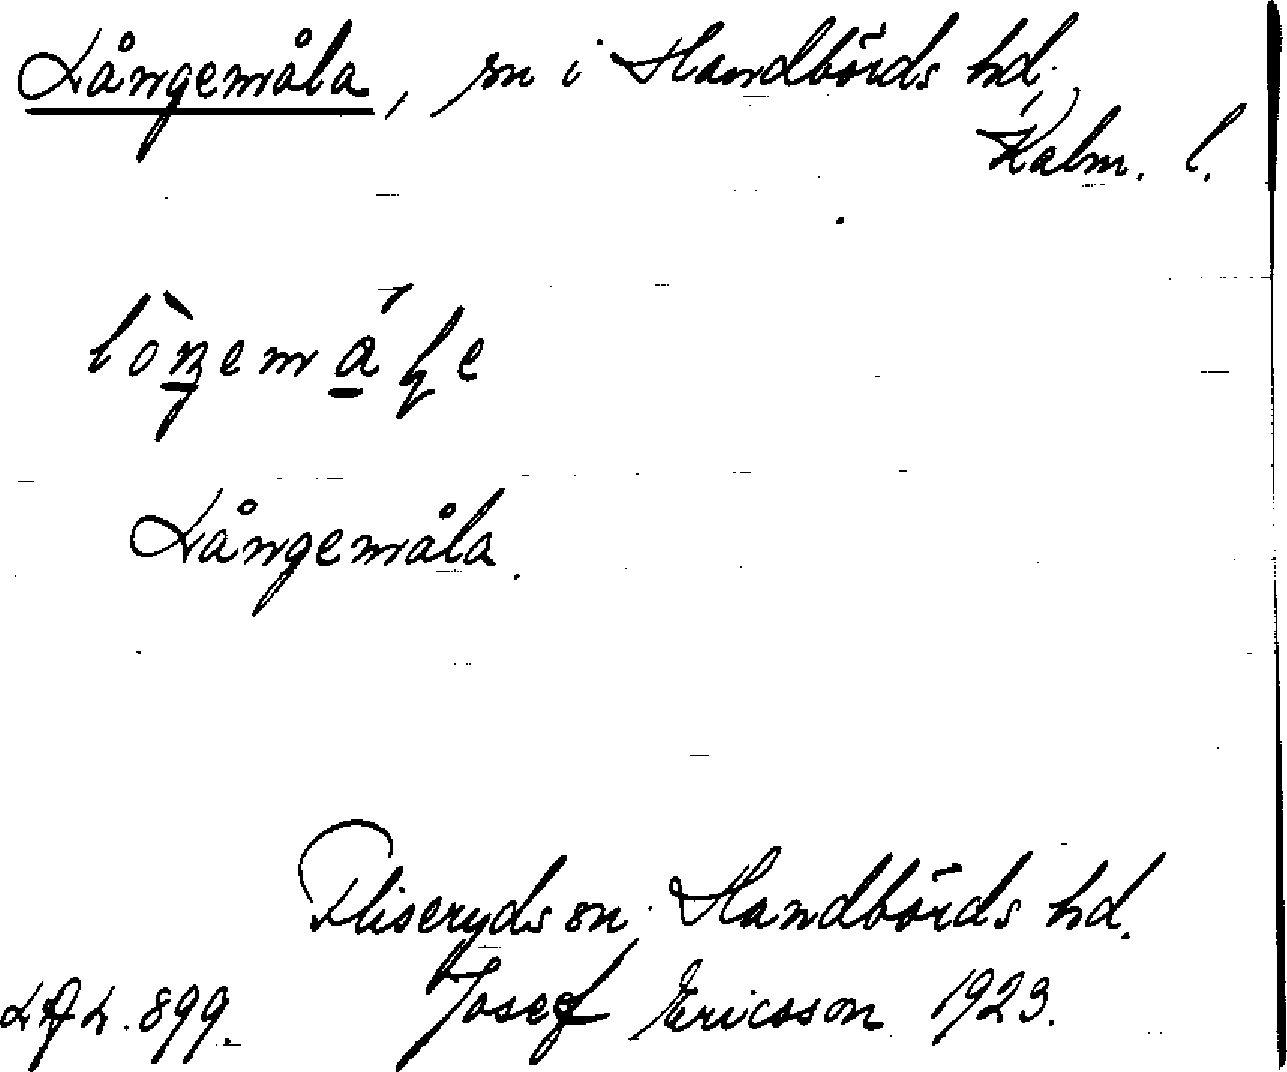 Långemåla, sn i Handbörds hd,
Kalm. l.
Långemåla.
Fliseryds sn, Handbörds hd.
LAL. 899. Josef Ericsson 1923.